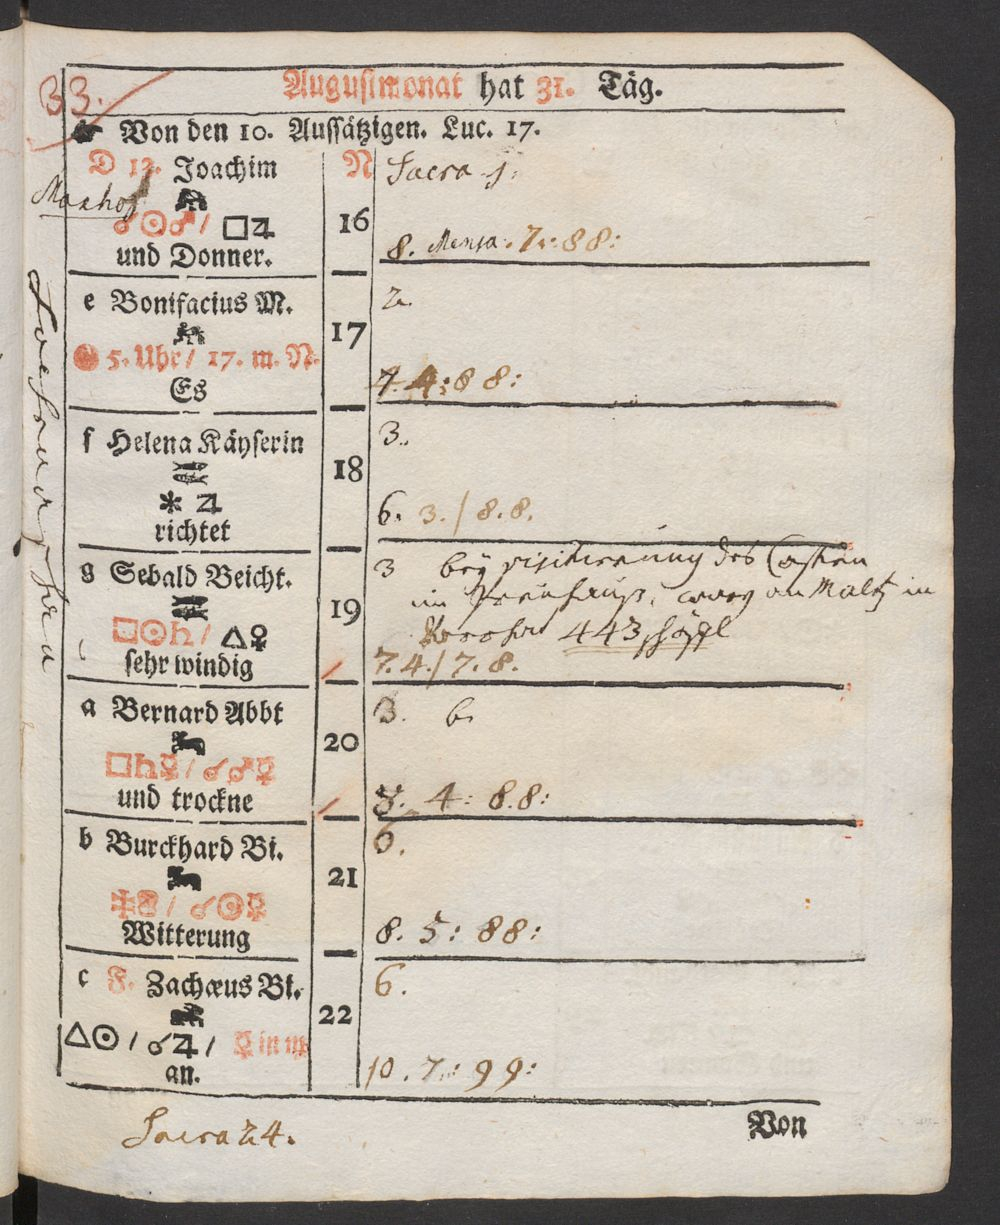 33.
Augustmonat hat 31. Täg.
☛ Von den 10. Aussätzigen. Luc. 17.
D 13. Joachim N 16 Sacra 1:
Maxhof
☌☉♂/ □♃
und Donner. 8. Mensa: 7: 88:
e Bonifacius M. 17 2.
5. Uhr/ 17. m. N.
Es 7. 4: 88:
f Helena Käyserin 18 3.
✱ ♃
richtet 6. 3./ 8.8.
g Sebald Beicht. 19 3 bey visitierung des Casten
im Preuhauß, warn an Maltz in
□☉♄/ △♀ 443 schäffl
sehr windig 7. 4./ 7. 8.
a Bernard Abbt 20 3. 6.
□♄☿/ ☌♂☿
und trockne 4: 8.8:
b Burckhard Bi. 21 6.
/ ☌☉☿
Witterung 8. 5: 88:
c F. Zachæus Bi. 22 6.
△☉/ ☌♃/ ☿ in ♍
an. 10. 7: 99:
Von
Sacra 24.